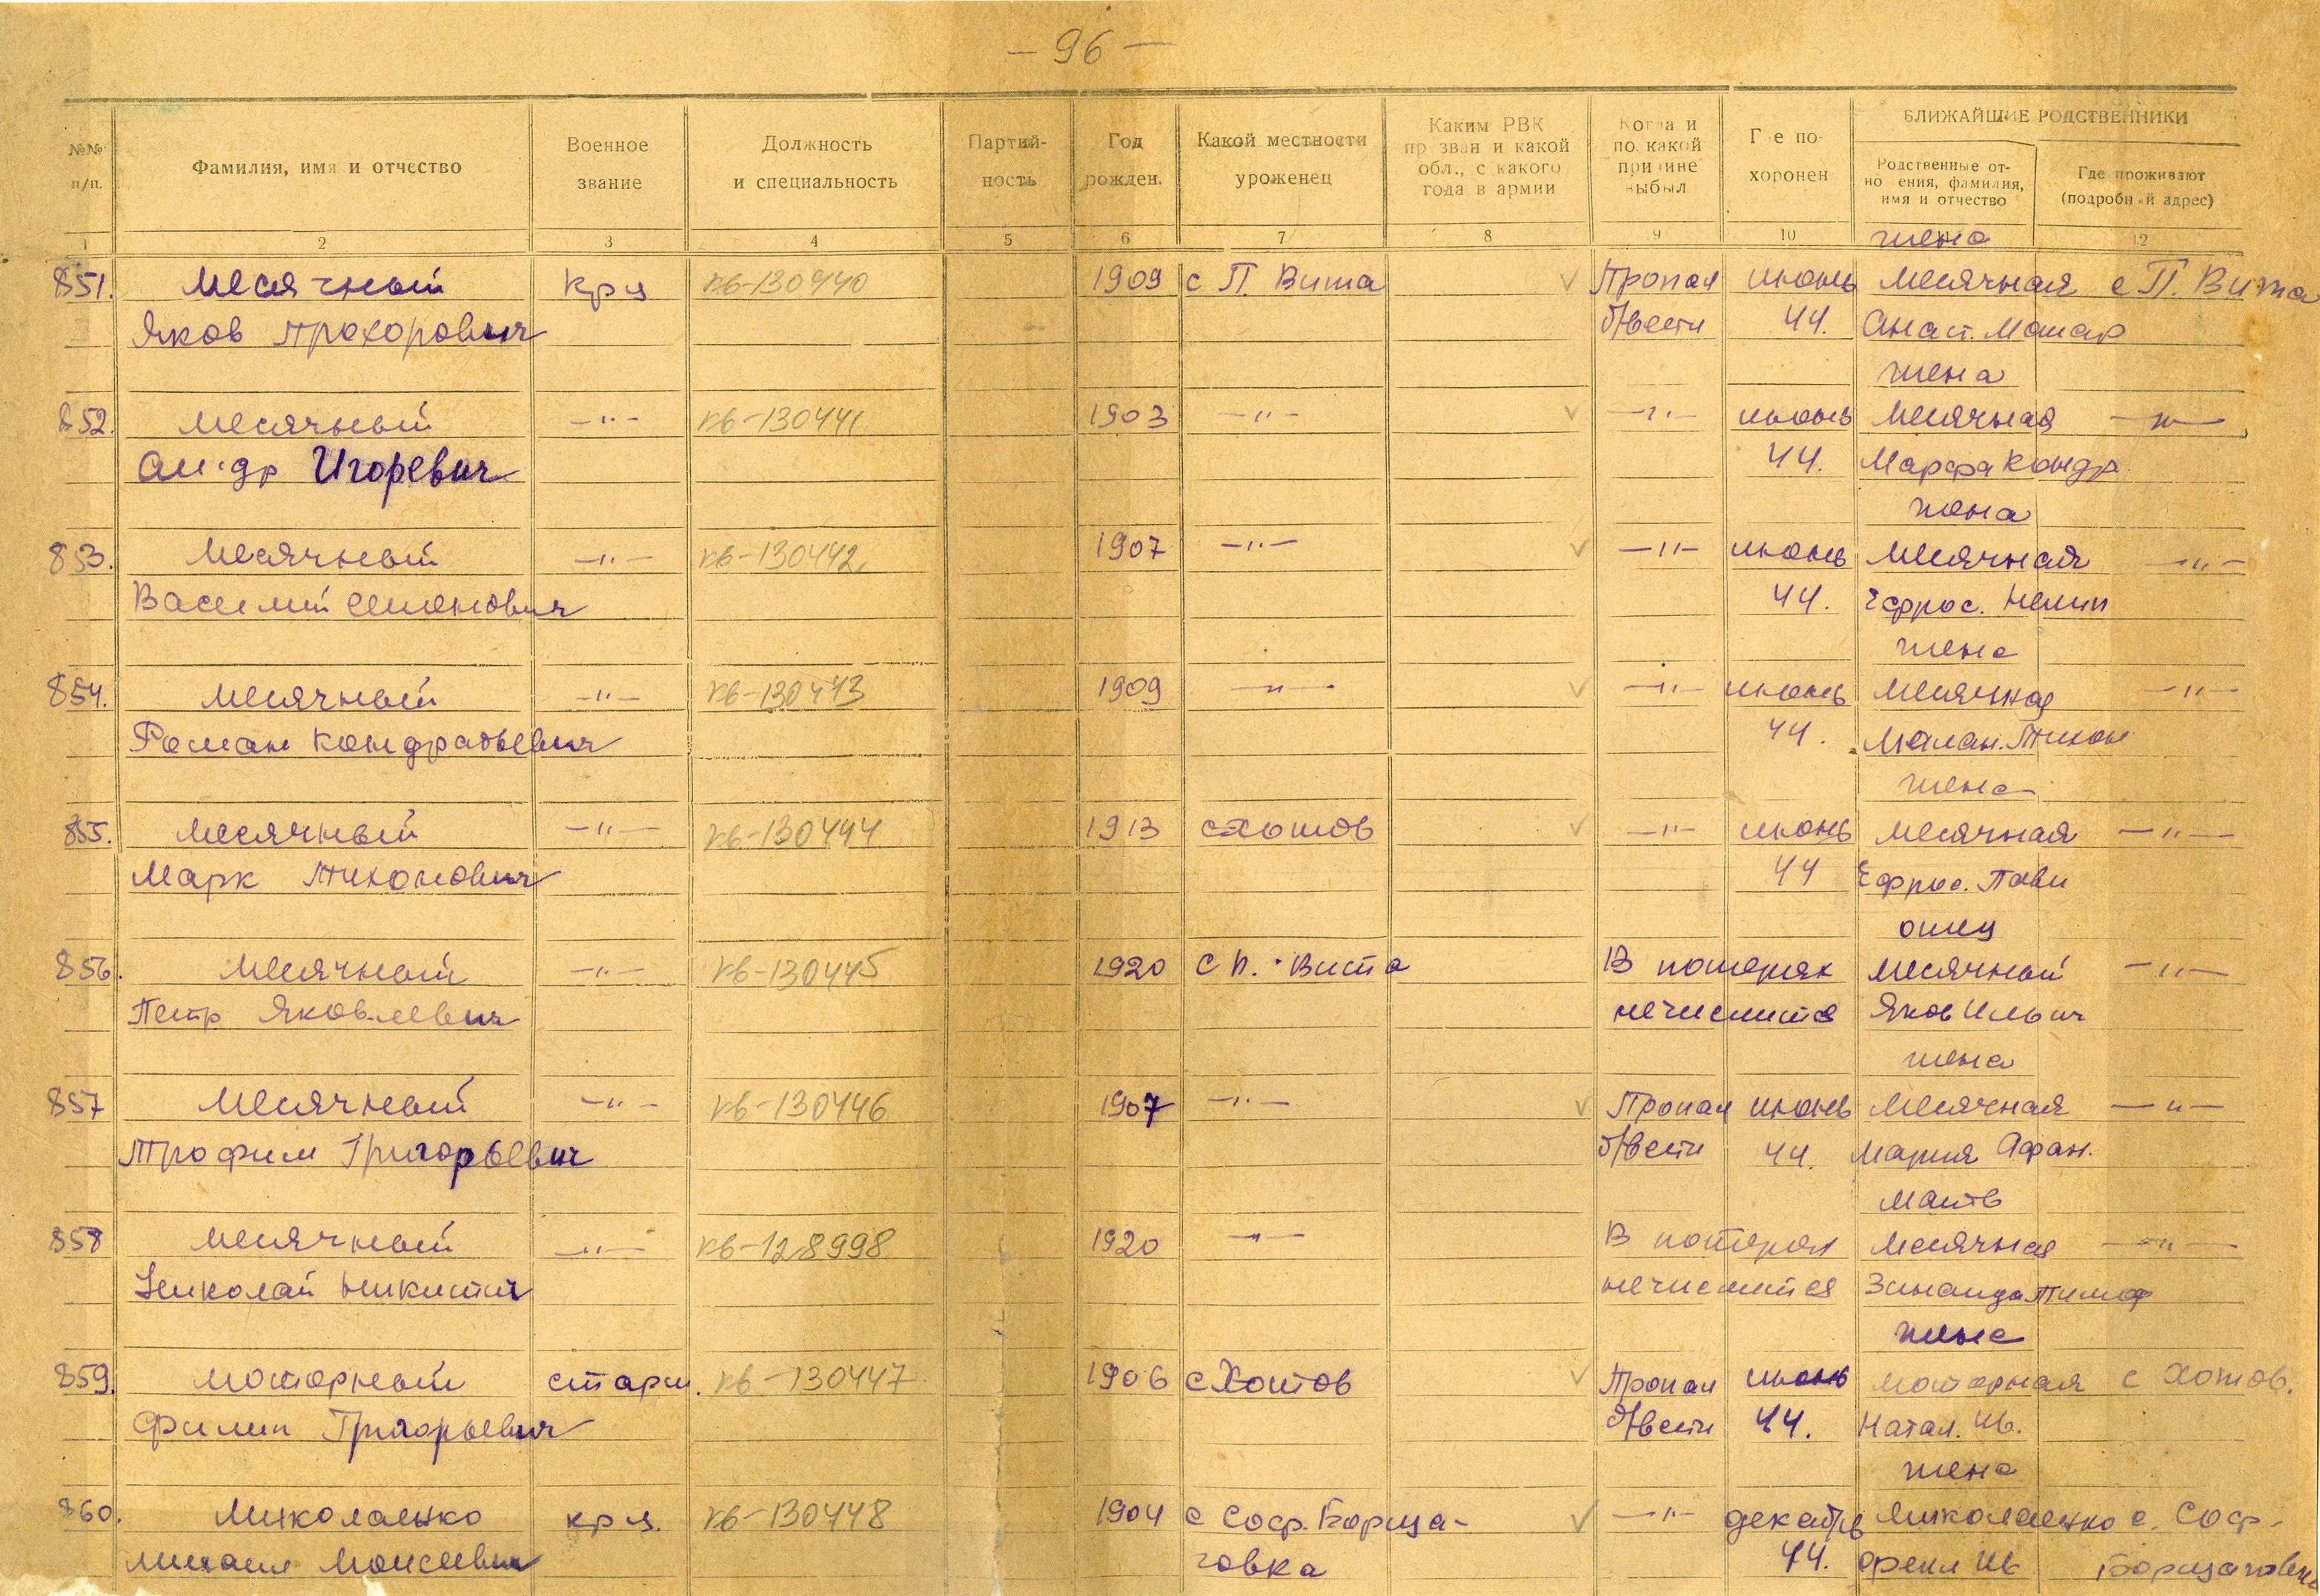 – 96 –
№№ п/п. Фамилия, имя и отчество Военное звание Должность и специальность Партий-ность Год рожден. Какой местности уроженец Каким РВК призван и какой обл., с какого года в армии Когда и по какой причине выбыл Где по-хоронен БЛИЖАЙШИЕ РОДСТВЕННИКИ
Родственные от-ношения, фамилия, имя и отчество Где проживают (подробный адрес)
1 2 3 4 5 6 7 8 9 10 12
жена
851. Месячный крц кв-130440 1909 с П. Вита √ Пропал июнь Месячная с П. Вита
Яков Прохорович б/вести 44. Анаст. Макар
жена
852. Месячный –"– кв-130441 1903 –"– √ –"– июнь Месячная –"–
Ал-др Игоревич 44. Марфа Кондр.
жена
853. Месячный –"– кв-130442 1907 –"– √ –"– июнь Месячная –"–
Василий Семенович 44. Ефрос.
жена
854. Месячный –"– кв-130443 1909 –"– √ –"– июнь Месячная –"–
Роман Кондратьевич 44. Малан. Тихон
жена
855. Месячный –"– кв-130444 1913 с Хотов √ –"– июнь Месячная –"–
Марк Тихонович 44 Ефрос. Павл
отец
856. Месячный –"– кв-130445 1920 с П. Вита В потерях Месячный –"–
Петр Яковлевич не числится Яков Ильич
жена
857 Месячный –"– кв-130446 1907 –"– √ Пропал июнь Месячная –"–
Трофим Григорьевич б/вести 44. Мария Афан.
мать
858 Месячный –"– кв-128998 1920 –"– В потерях Месячная –"–
Николай Никитич не числится Зинаида Тимоф
жена
859. Моторный старш. кв-130447 1906 с Хотов √ Пропал июнь Моторная с Хотов.
Филип Григорьевич б/вести 44. Натал. Ив.
жена
860. Миколаенко крц. кв-130448 1904 с Соф. Борща- √ –"– декабрь Миколаенко с. Соф.
Михаил Моисеевич говка 44. Фекл Ив Борщаговка